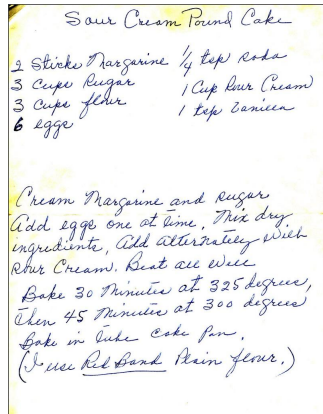 Sour Cream Pound Cake
2 Sticks Margarine 1/4 tsp soda
3 Cups Sugar 1 Cup Sour Cream
3 Cups flour 1 tsp Vanilla
6 eggs
Cream Margarine and sugar
Add eggs one at time, Mix dry
ingredients, Add Alternately with
Sour Cream. Beat all well
Bake 30 Minutes at 325 degrees,
Then 45 Minutes at 300 degrees
Bake in tube Cake Pan.
(I use Red Band Plain flour.)